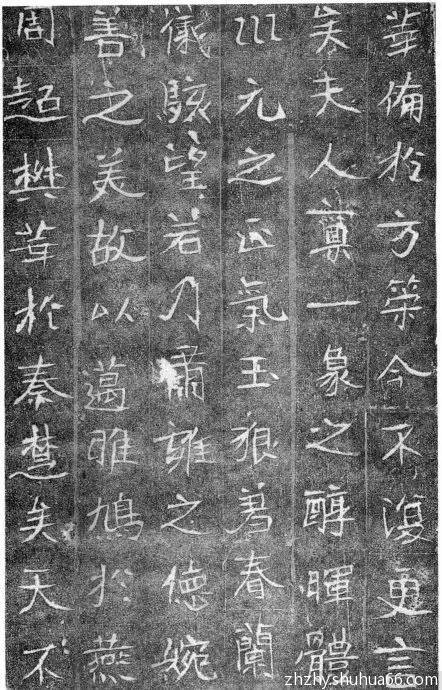 華備於方策今不復更言
矣夫人稟一象之醇暉體
川元之正氣玉貌著春蘭
儀駭望若乃肅雍之德婉
善之美故以邁雎鳩於燕
周超樊華於秦楚矣天不
zhzhyshuhua66.com